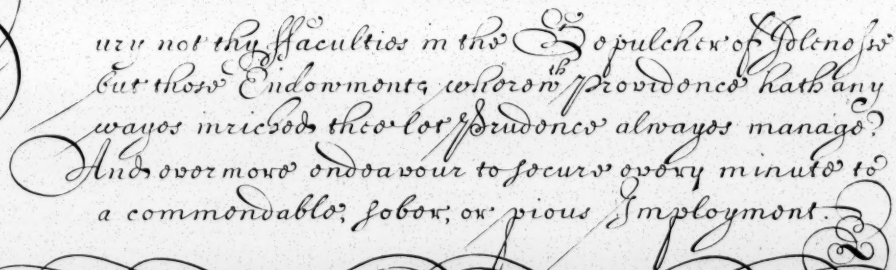 ury not thy ffaculties in the Sepulcher of Idlenesse
but those Endowments wherewth Providence hath any
wayes inriched thee let Prudence alwayes manage?
And evermore endeavour to secure every minute to
a commendable, sober, or pious Imployment.